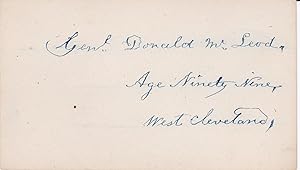 Genl. Donald Mc Leod,
Age Ninety Nine,
West Cleveland,